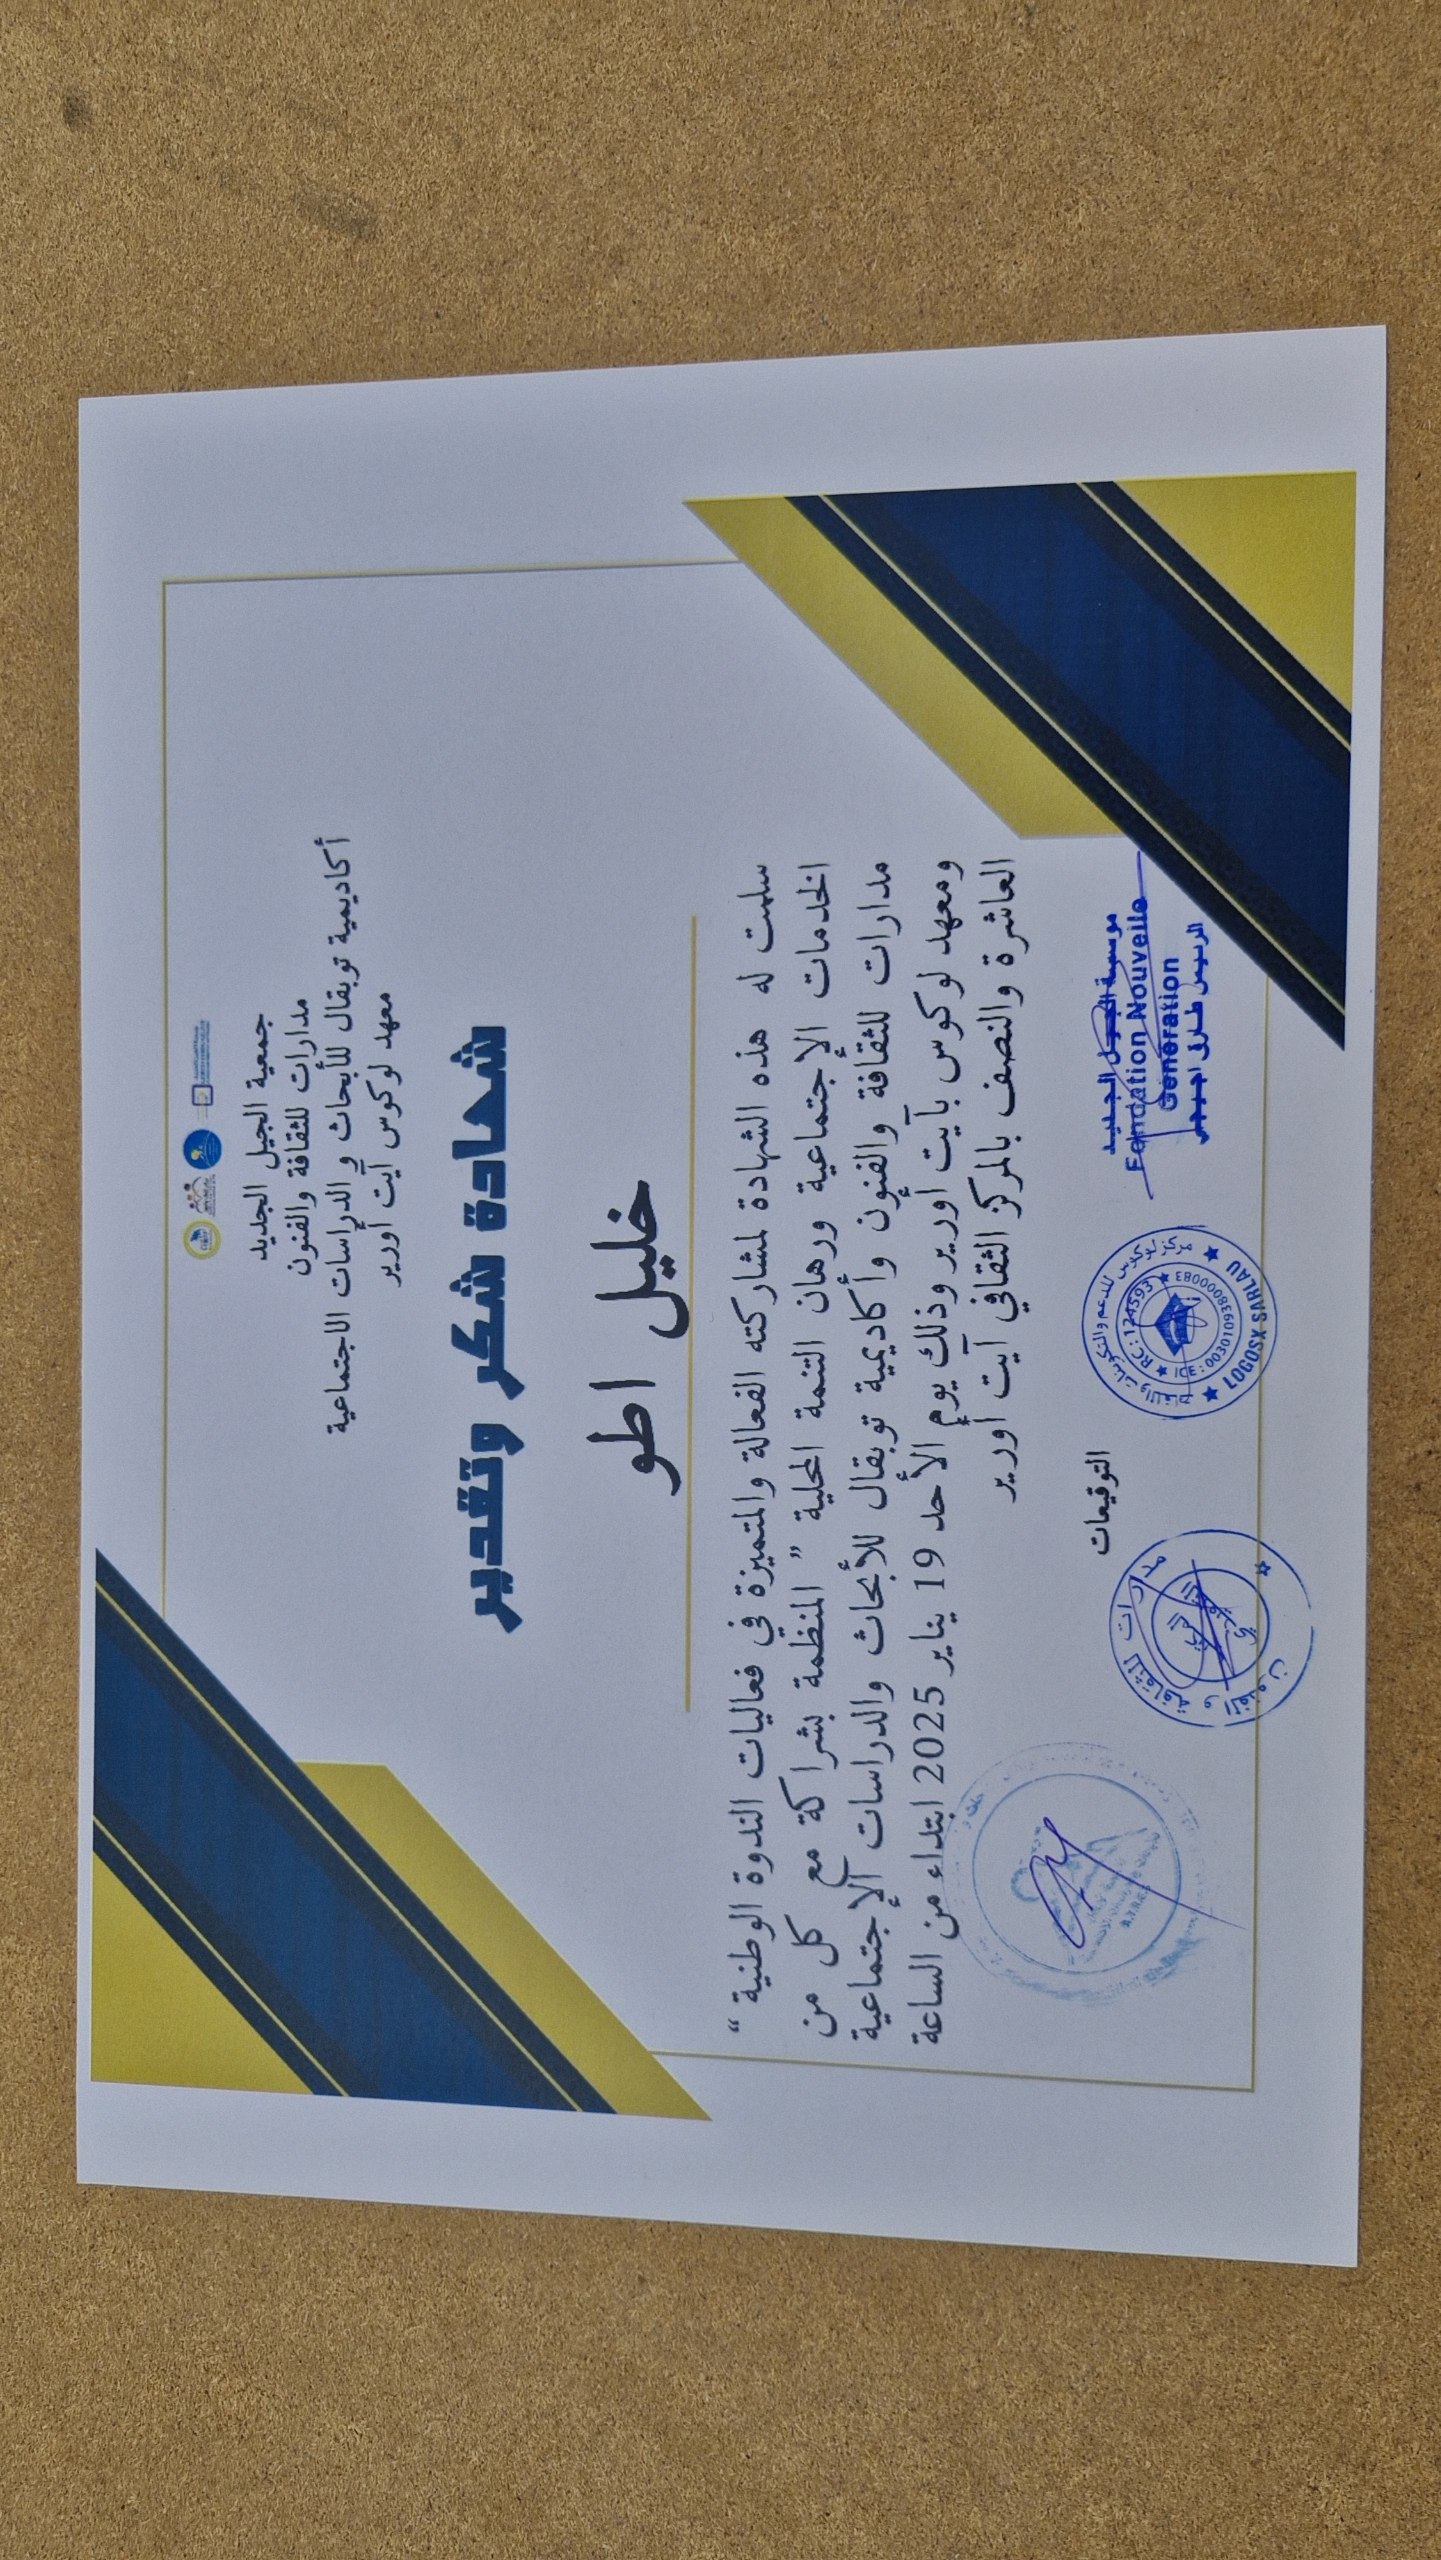 جمعية الجيل الجديد
مدارات للثقافة والفنون
أكاديمية توبقال للأبحاث و الدراسات الاجتماعية
معهد لوكوس آيت أورير
شهادة شكر وتقدير
خليل اطو
سلمت له هذه الشهادة لمشاركته الفعالة والمتميزة في فعاليات الندوة الوطنية "
الخدمات الإجتماعية ورهان التنمة المحلية " المنظمة بشراكة مع كل من
مدارات للثقافة والفنون وأكاديمية توبقال للأبحاث والدراسات الإجتماعية
ومعهد لوكوس بآيت أورير وذلك يوم الأحد 19 يناير 2025 ابتداء من الساعة
العاشرة والنصف بالمركز الثقافي آيت أورير
التوقيعات
مؤسسة الجيل الجديد
Fondation Nouvelle
Génération
الرئيس طارق
مركز لوكوس للدعم والتكوينات واللغات
RC: 124593
ICE: 003010938000083
LOGOSX SARLAU
مدارات للثقافة و الفنون